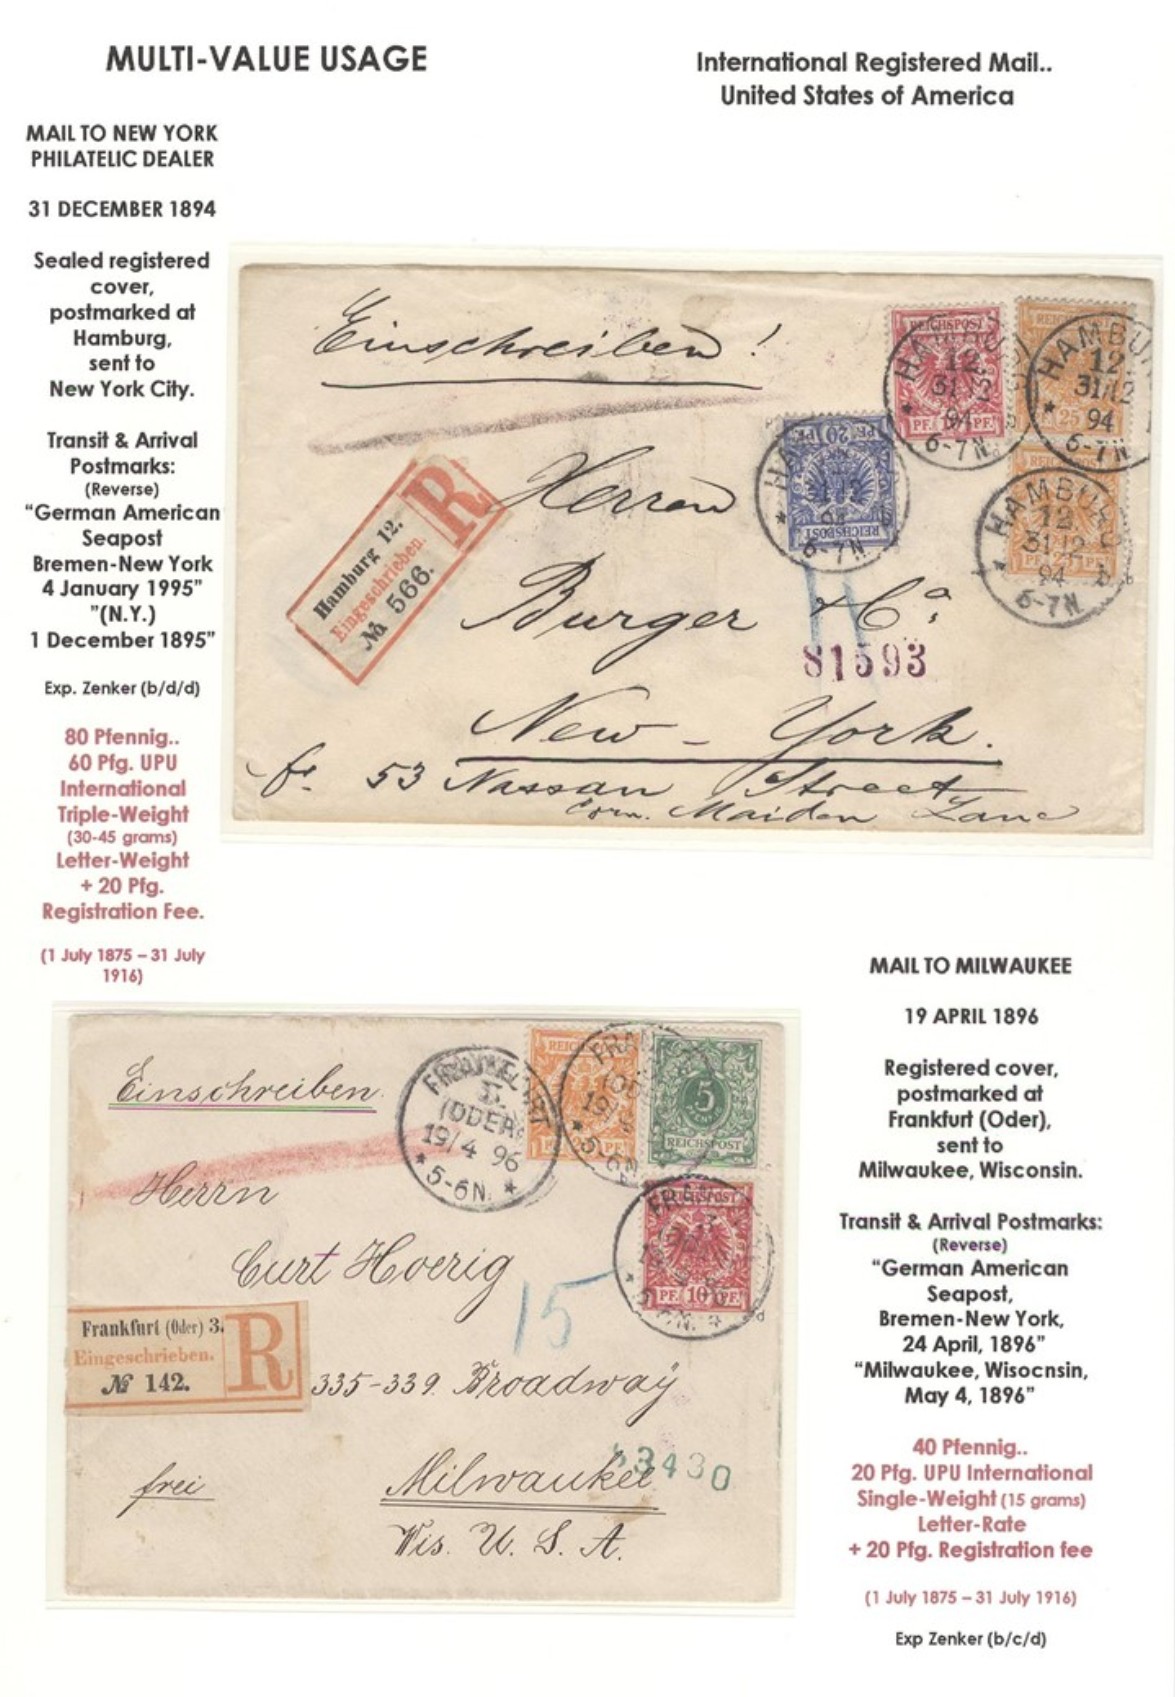 MULTI-VALUE USAGE
International Registered Mail..
United States of America
MAIL TO NEW YORK
PHILATELIC DEALER
31 DECEMBER 1894
Sealed registered
cover,
postmarked at
Hamburg,
sent to
New York City.
Transit & Arrival
Postmarks:
(Reverse)
“German American
Seapost
Bremen-New York
4 January 1995”
”(N.Y.)
1 December 1895”
Exp. Zenker (b/d/d)
80 Pfennig..
60 Pfg. UPU
International
Triple-Weight
(30-45 grams)
Letter-Weight
+ 20 Pfg.
Registration Fee.
(1 July 1875 – 31 July
1916)
Einschreiben!
REICHSPOST
HAMBU
12
31/12
94
6-7N
HAMBU
12
31/12
94
6-7N
25
PF. 20 PF.
REICHSPOST
6-7N
HAMBU
12
31/12
94
6-7N
Hamburg 12.
Eingeschrieben.
№ 566.
R
Herren
Burger & Co.
81593
New-York.
fr. 53 Nassau Street
Corn. Maiden Lane
MAIL TO MILWAUKEE
19 APRIL 1896
Registered cover,
postmarked at
Frankfurt (Oder),
sent to
Milwaukee, Wisconsin.
Transit & Arrival Postmarks:
(Reverse)
“German American
Seapost,
Bremen-New York,
24 April, 1896”
“Milwaukee, Wisocnsin,
May 4, 1896”
40 Pfennig..
20 Pfg. UPU International
Single-Weight (15 grams)
Letter-Rate
+ 20 Pfg. Registration fee
(1 July 1875 – 31 July 1916)
Exp Zenker (b/c/d)
Einschreiben.
(ODER)
19/4 96
5-6N.
5
REICHSPOST
PF. 10 PF.
Herrn
Curt Hoerig
15
Frankfurt (Oder) 3.
Eingeschrieben.
№ 142.
R
335-339. Broadway
3430
frei
Milwaukee
Wis. U. S. A.